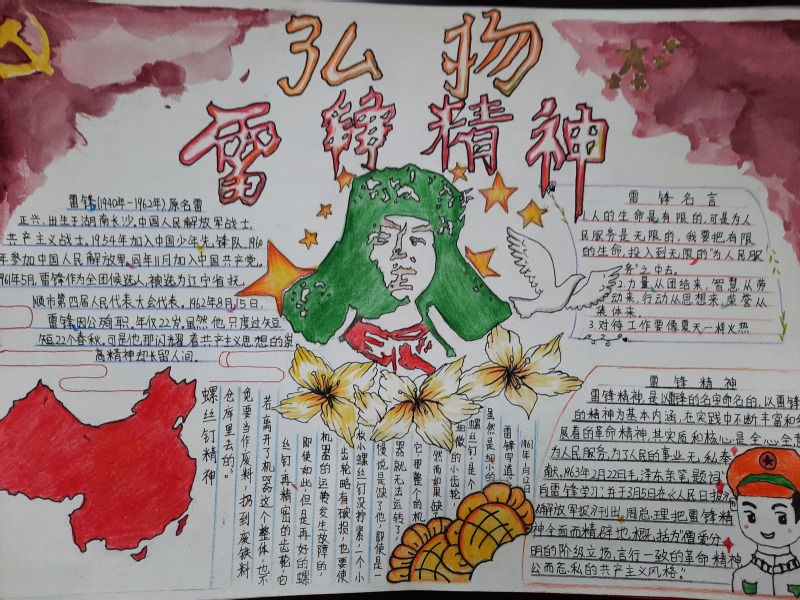 弘扬
雷锋精神
雷锋(1940年-1962年)原名雷
正兴,出生于湖南长沙,中国人民解放军战士,
共产主义战士,1954年加入中国少年先锋队,1960
年参加中国人民解放军,同年11月加入中国共产党。
1961年5月,雷锋作为全团候选人,被选为辽宁省抚
顺市第四届人民代表大会代表。1962年8月15日,
雷锋因公殉职,年仅22岁,虽然他只度过短
短22个春秋,可是他那闪耀着共产主义思想的
高精神却长留人间。
雷锋名言
1.人的生命是有限的,可是为人
民服务是无限的,我要把有限
的生命,投入到无限的"为人民服
务"之中去。
2.力量从团结来,智慧从劳
动来,行动从思想来,荣誉从
集体来。
3.对待工作要像夏天一样火热
雷锋精神
雷锋精神,是以雷锋的名字命名的,以雷锋
的精神为基本内涵,在实践中不断丰富和
展着的革命精神,其实质和核心是全心全
为人民服务,为了人民的事业无私奉
献,1963年2月22日毛泽东亲笔题词
向雷锋学习,并于3月5日在《人民日报》
解放军报》刊出,周总理把雷锋精
神全面而精辟地概括为"憎爱分
明的阶级立场,言行一致的革命精神
公而忘私的共产主义风格。"
雷锋写道:
虽然是细小的
螺丝钉,是个
细微的小齿轮
然而如果缺
它,那整个的机
器就无法运转了
慢说是缺了他,即使是
一枚小螺丝钉没拧紧,一个小
齿轮略有破损,也要使
机器的运转发生故障的,
即使如此,但是再好的螺
丝钉,再精密的齿轮,它
若离开了机器这个整体,也不
免要当作废料,扔到废铁料
仓库里去的。
螺丝钉精神